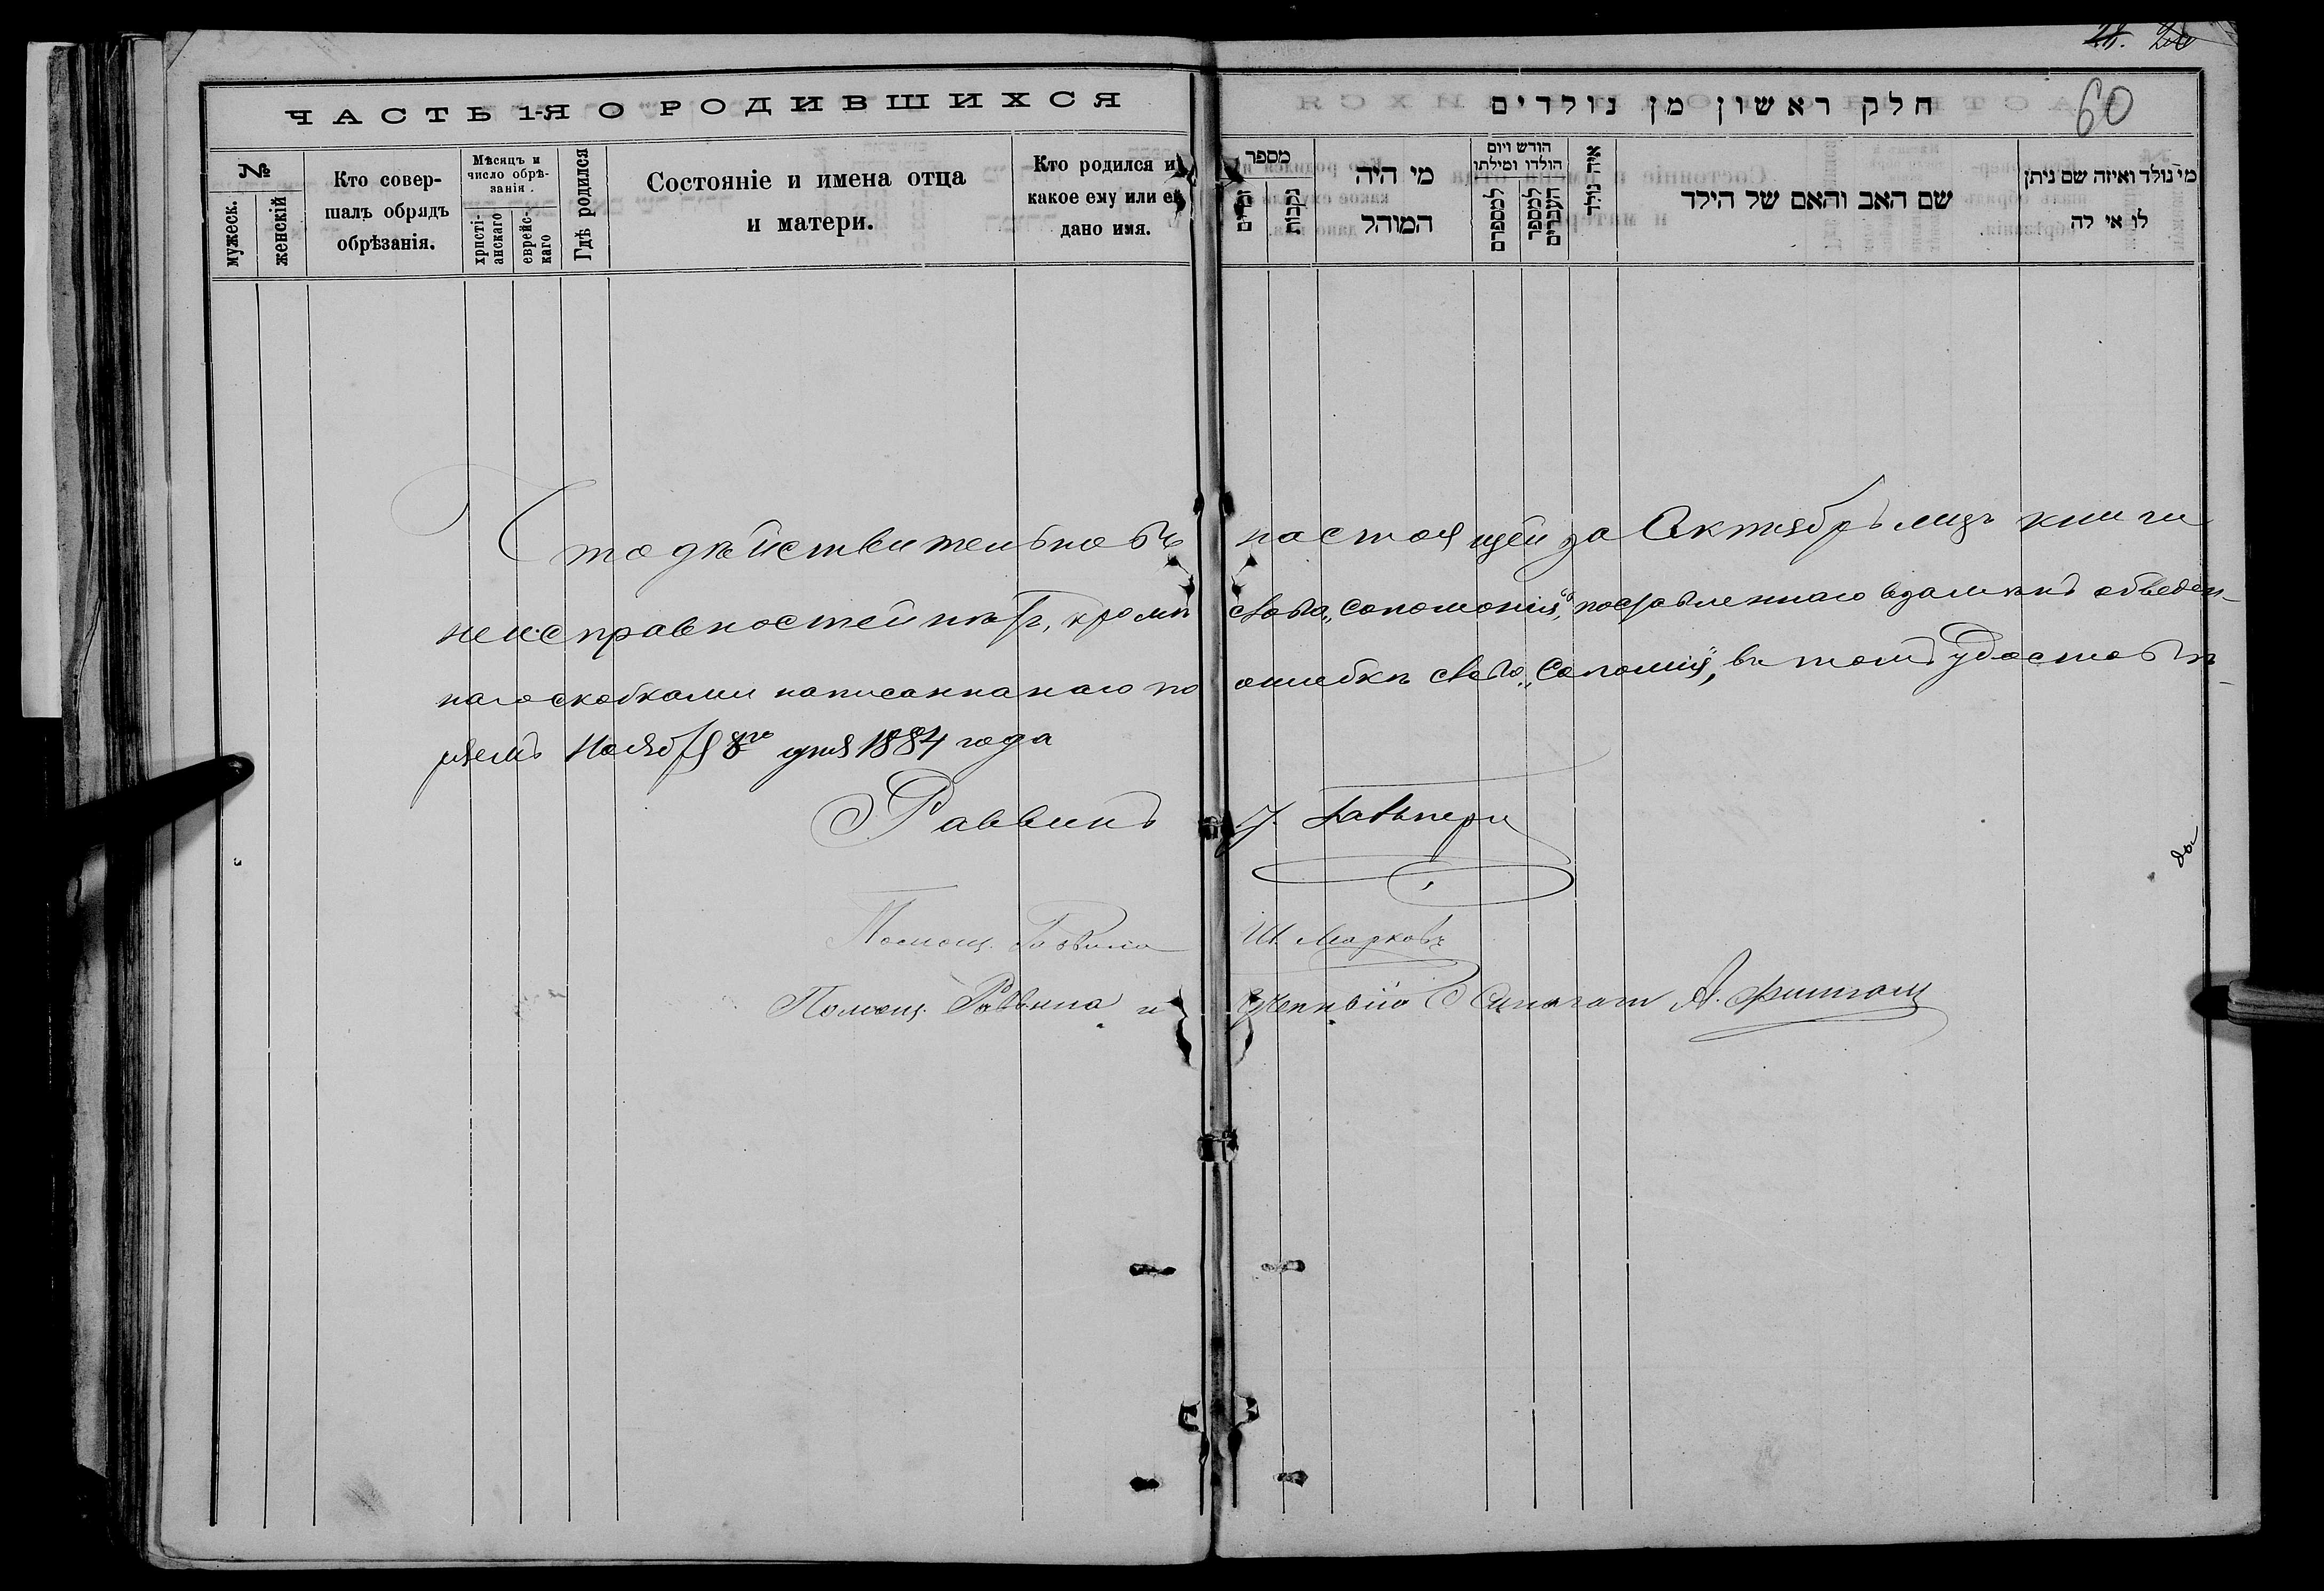 60
ЧАСТЬ 1-Я О РОДИВШИХСЯ
№
мужеск.
женскій
Кто совер-
шалъ обрядъ
обрѣзанія.
Мѣсяцъ и
число обрѣ-
занія.
христі-
анскаго
еврейс-
каго
Гдѣ родился
Состояніе и имена отца
и матери.
Кто родился и
какое ему или ей
дано имя.
חלק ראשון מן נולדים
מספר
זכרים
נקבות
מי היה
המוהל
חודש ויום
הולדו ומילתו
למספרם
למספר
העברים
איה נולד
שם האב והאם של הילד
מי נולד ואיזה שם ניתן
לו או לה
Что дѣйствительно въ настоящей за Октябрь мцъ книги
неисправностей нѣтъ, кромѣ слова „Соломонія“, поставленнаго обведен-
наго скобками написаннанаго по ошибкѣ слова „Соломія“, въ томъ удостовѣ-
ряемъ Ноября 8го дня 1884 года
Раввинъ
Помощ. Раввина Ш. Марковъ
Помощ. Раввина и Ученный Синагоги А.